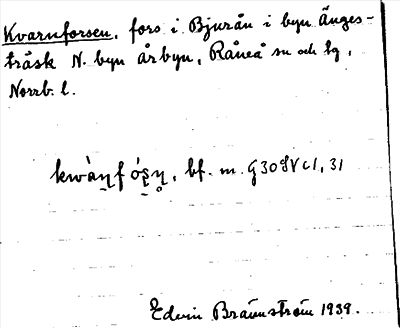 Kvarnforsen, fors i Bjurån i byn Änges-
träsk N. byn Årbyn, Råneå sn och tg,
Norrb. l.
kwàn̥f ós̥n̥, bf. m. G3098Vc1, 31
Edvin Brännström 1939.